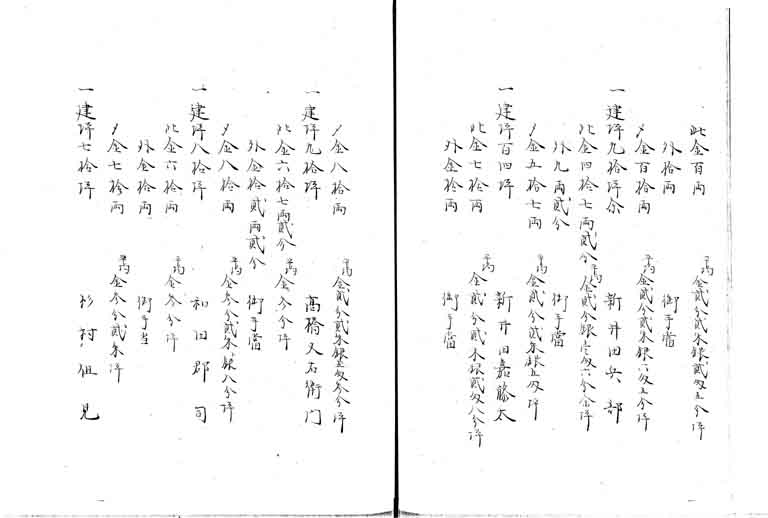 此金百両 平均 金貳分貳朱銀貳匁五分坪
外拾両 御手當
〆金百拾両 平均 金貳分貳朱銀六匁五分坪
一建坪九拾坪余 新井田兵部
此金四拾七両貳分 平均 金貳分銀壱匁六分余坪
外九両貳分 御手當
〆金五拾七両 平均 金貳分貳朱銀五匁坪
一建坪百四坪 新井田嘉藤太
此金七拾両 平均 金貳分貳朱銀貳匁八分坪
外金拾両 御手當
〆金八拾両 平均 金貳分貳朱銀壱匁五分坪
一建坪九拾坪 高橋又右衛門
此金六拾七両貳分 平均 金三分坪
外金拾貳両貳分 御手當
〆金八拾両 平均 金三分貳朱銀八分坪
一建坪八拾坪 和田郡司
此金六拾両 平均 金三分坪
外金拾両 御手当
〆金七拾両 平均 金三分貳朱坪
一建坪七拾坪 杉村但見